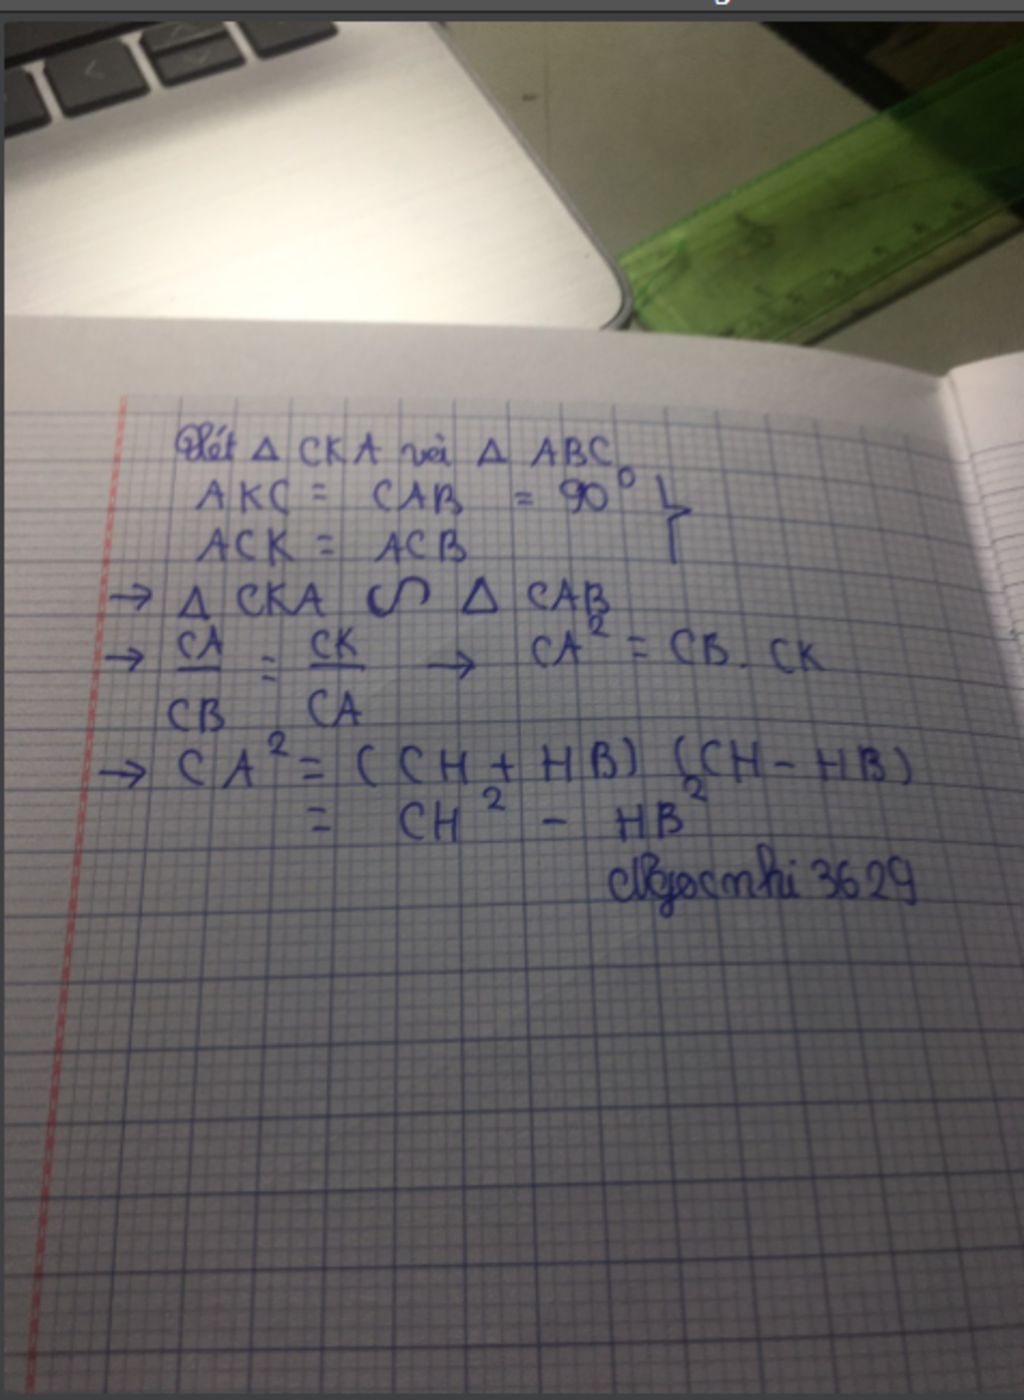 Xét Δ CKA và Δ ABC
AKC = CAB = 90⁰ }
ACK = ACB
→ Δ CKA ∽ Δ CAB
→ CA/CB = CK/CA → CA² = CB . CK
→ CA² = (CH + HB) (CH - HB)
= CH² - HB²
Ngocnhi 3629